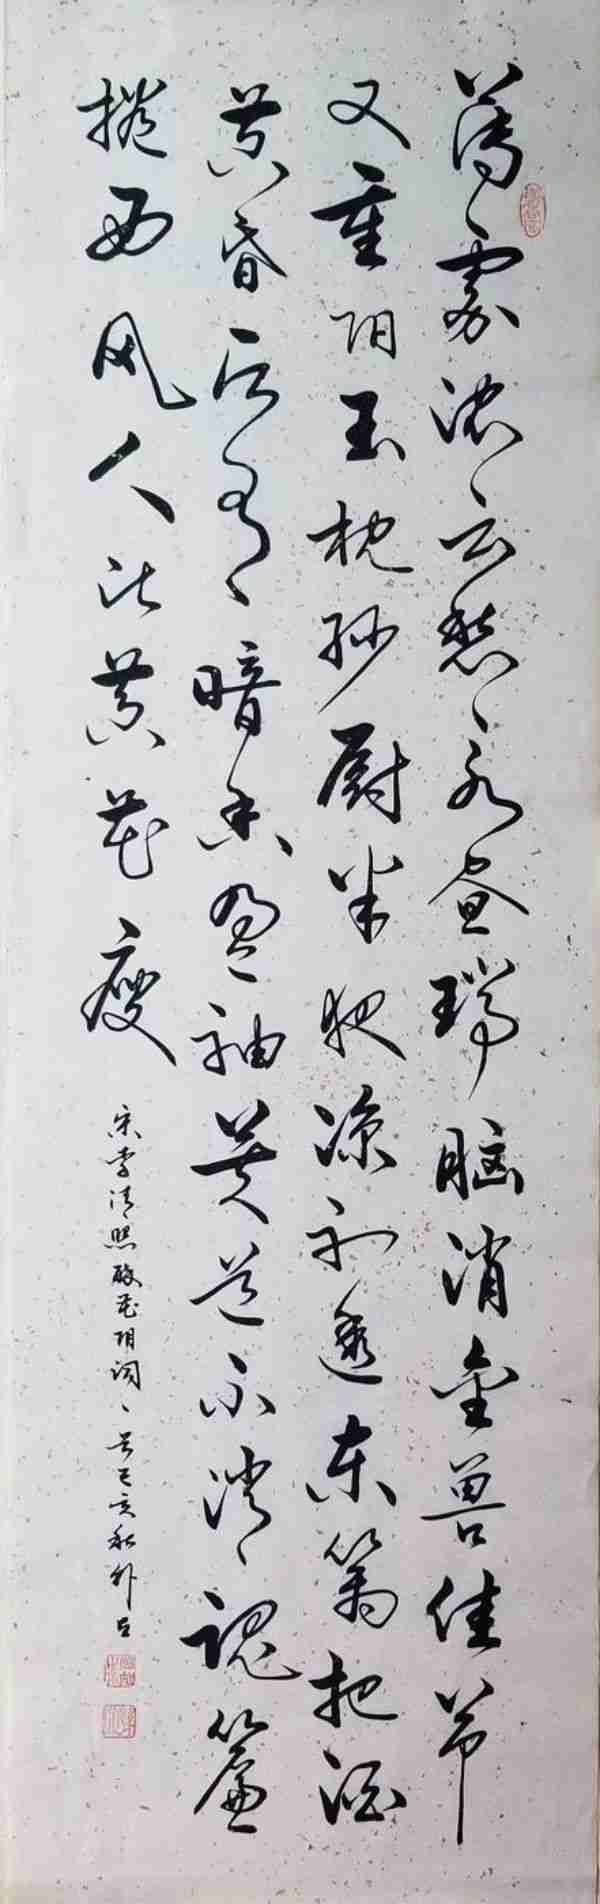 薄雾浓云愁永昼瑞脑消金兽佳节
又重阳玉枕纱厨半夜凉初透东篱把酒
黄昏后有暗香盈袖莫道不消魂簾
捲西风人比黄花瘦
宋李清照醉花阴词一首己亥秋